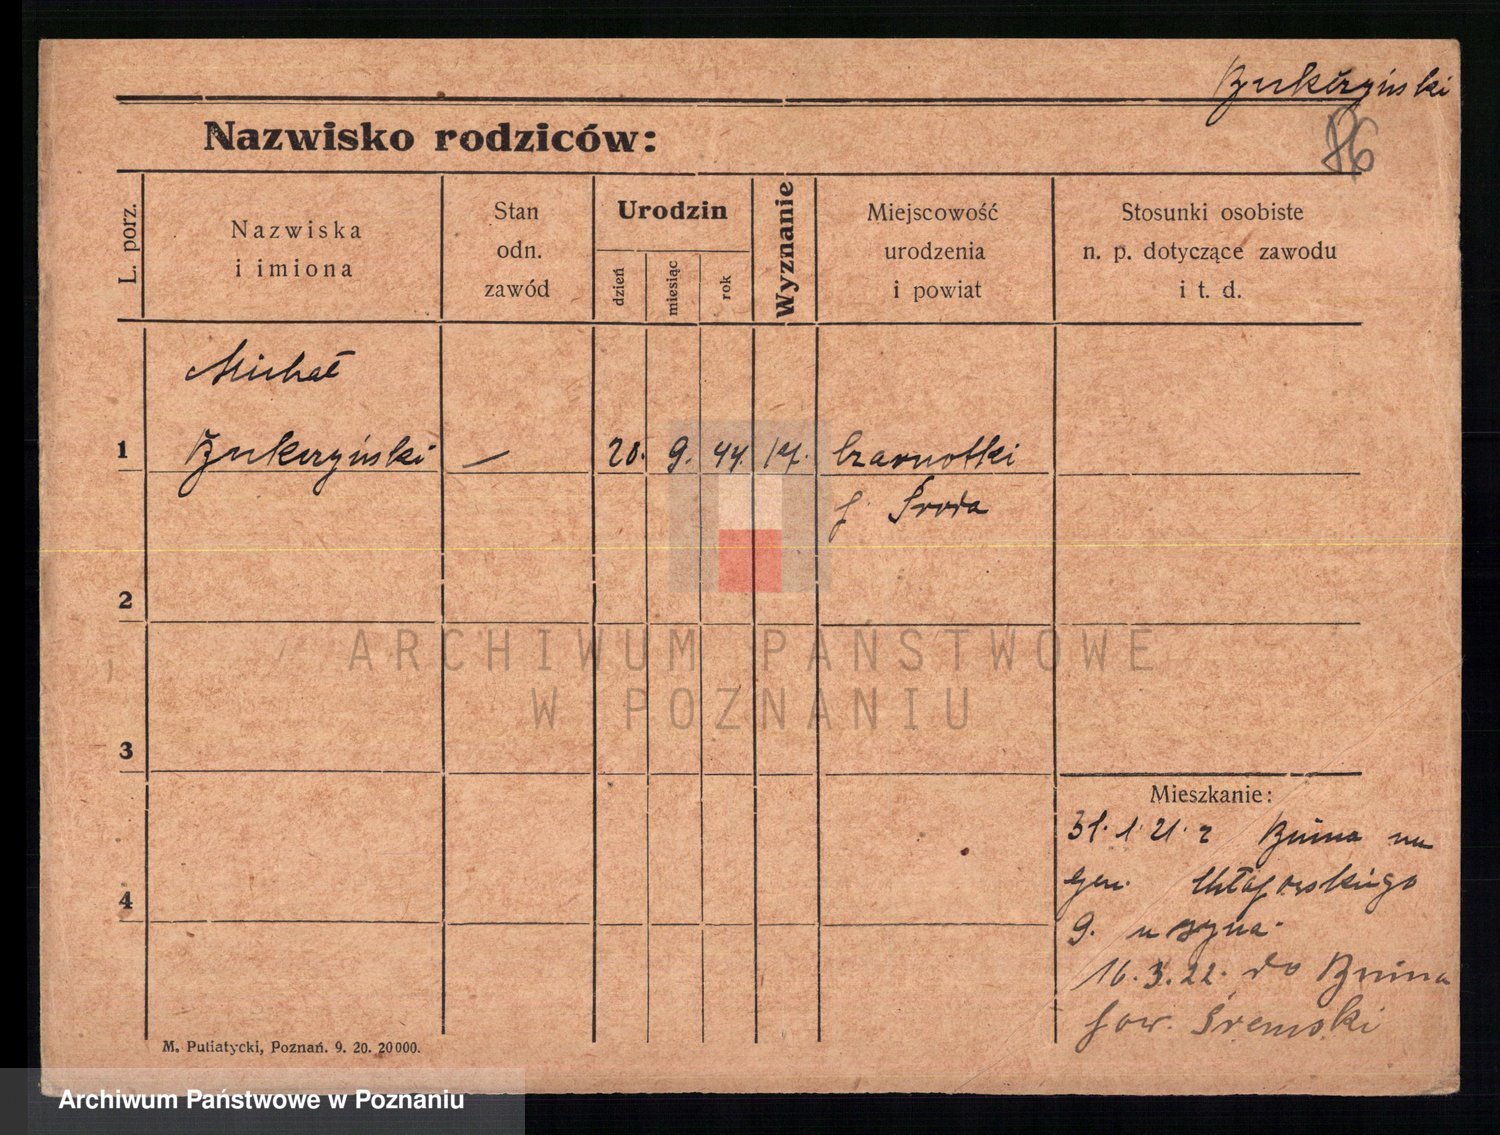 Nazwisko rodziców:
86
L. porz.
Nazwiska
i imiona
Stan
odn.
zawód
Urodzin
dzień
miesiąc
rok
Wyznanie
Miejscowość
urodzenia
i powiat
Stosunki osobiste
n. p. dotyczące zawodu
i t. d.
Michał
1
20. 9. 44. kat. Czarnotki
p. Środa
2
ARCHIWUM PAŃSTWOWE
W POZNANIU
3
Mieszkanie:
31. 1. 21. z Bnina na
4
gen.
9. u syna.
16. 3. 22. do Bnina
pow. Śremski
M. Putiatycki, Poznań. 9. 20. 20000.
Archiwum Państwowe w Poznaniu